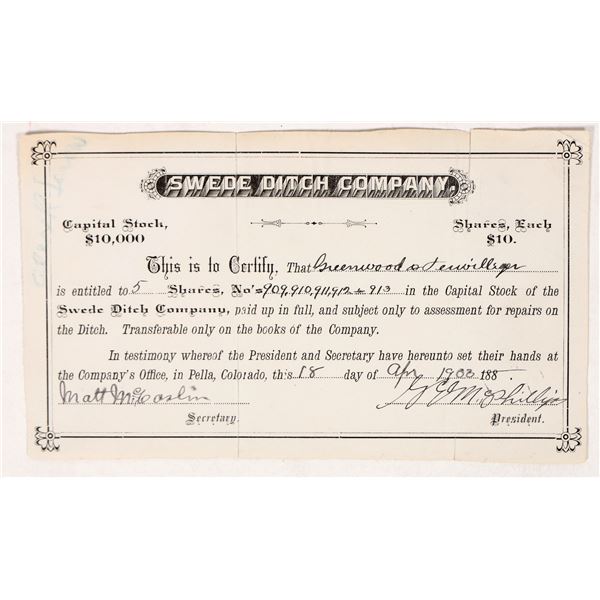 SWEDE DITCH COMPANY.
Capital Stock, $10,000
Shares, Each $10.
This is to Certify, That Greenwood &
is entitled to 5 Shares, No's 909, 910, 911, 912 & 913 in the Capital Stock of the
Swede Ditch Company, paid up in full, and subject only to assessment for repairs on
the Ditch. Transferable only on the books of the Company.
In testimony whereof the President and Secretary have hereunto set their hands at
the Company's Office, in Pella, Colorado, this 18 day of Apr 1903 188
Matt McCaslin
Secretary.
President.